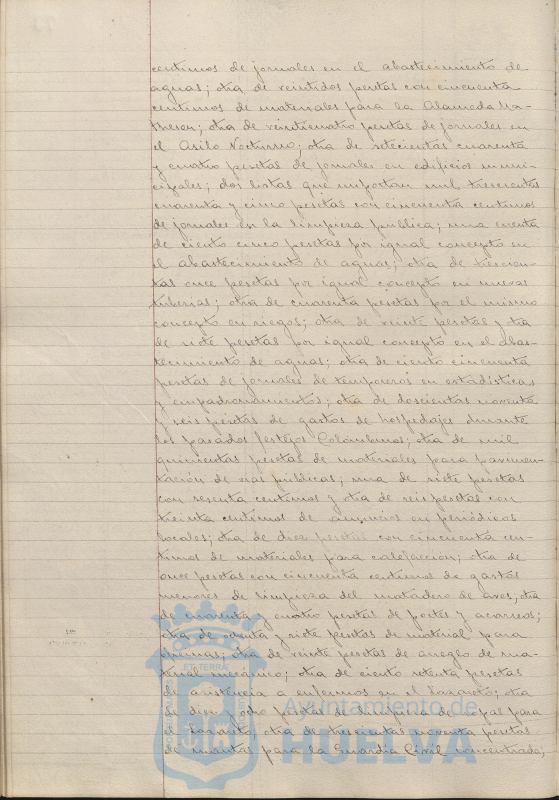 centimos de jornales en el abastecimiento de
aguas; otra de veintidos pesetas con cincuenta
centimos de materiales para la Alameda Sa-
otra de veinticuatro pesetas de jornales en
el Asilo Nocturno; otra de setecientas cuarenta
y cuatro pesetas de jornales en edificios muni-
cipales; dos listas que importan mil trescientas
cuarenta y cinco pesetas con cincuenta centimos
de jornales en la limpieza publica; una cuenta
de ciento cinco pesetas por igual concepto en
el abastecimiento de aguas; otra de trescien-
tas once pesetas por igual concepto en nuevas
tuberias; otra de cuarenta pesetas por el mismo
concepto en riegos; otra de veinte pesetas y otra
de siete pesetas por igual concepto en el abas-
tecimiento de aguas; otra de ciento cincuenta
pesetas de jornales de temporeros en estadisticas
y empadronamientos; otra de doscientas noventa
y seis pesetas de gastos de hospedajes durante
los pasados festejos Colombinos; otra de mil
quinientas pesetas de materiales para pavimen-
tación de vias publicas; una de siete pesetas
con sesenta centimos y otra de seis pesetas con
treinta centimos de anuncios en periódicos
locales; otra de diez pesetas con cincuenta cen-
timos de materiales para calefaccion; otra de
once pesetas con cincuenta centimos de gastos
menores de limpieza del matadero de aves; otra
de cuarenta y cuatro pesetas de portes y acarreos;
otra de ochenta y siete pesetas de material para
oficinas; otra de veinte pesetas de arreglo de ma-
terial mecánico; otra de ciento setenta pesetas
de asistencia a enfermos en el Lazareto; otra
de diez y ocho pesetas de limpieza de ropas para
el Lazareto; otra de trescientas noventa pesetas
de mantas para la Guardia Civil concentrada;
ET TERRÆ
Ayuntamiento de
HUELVA